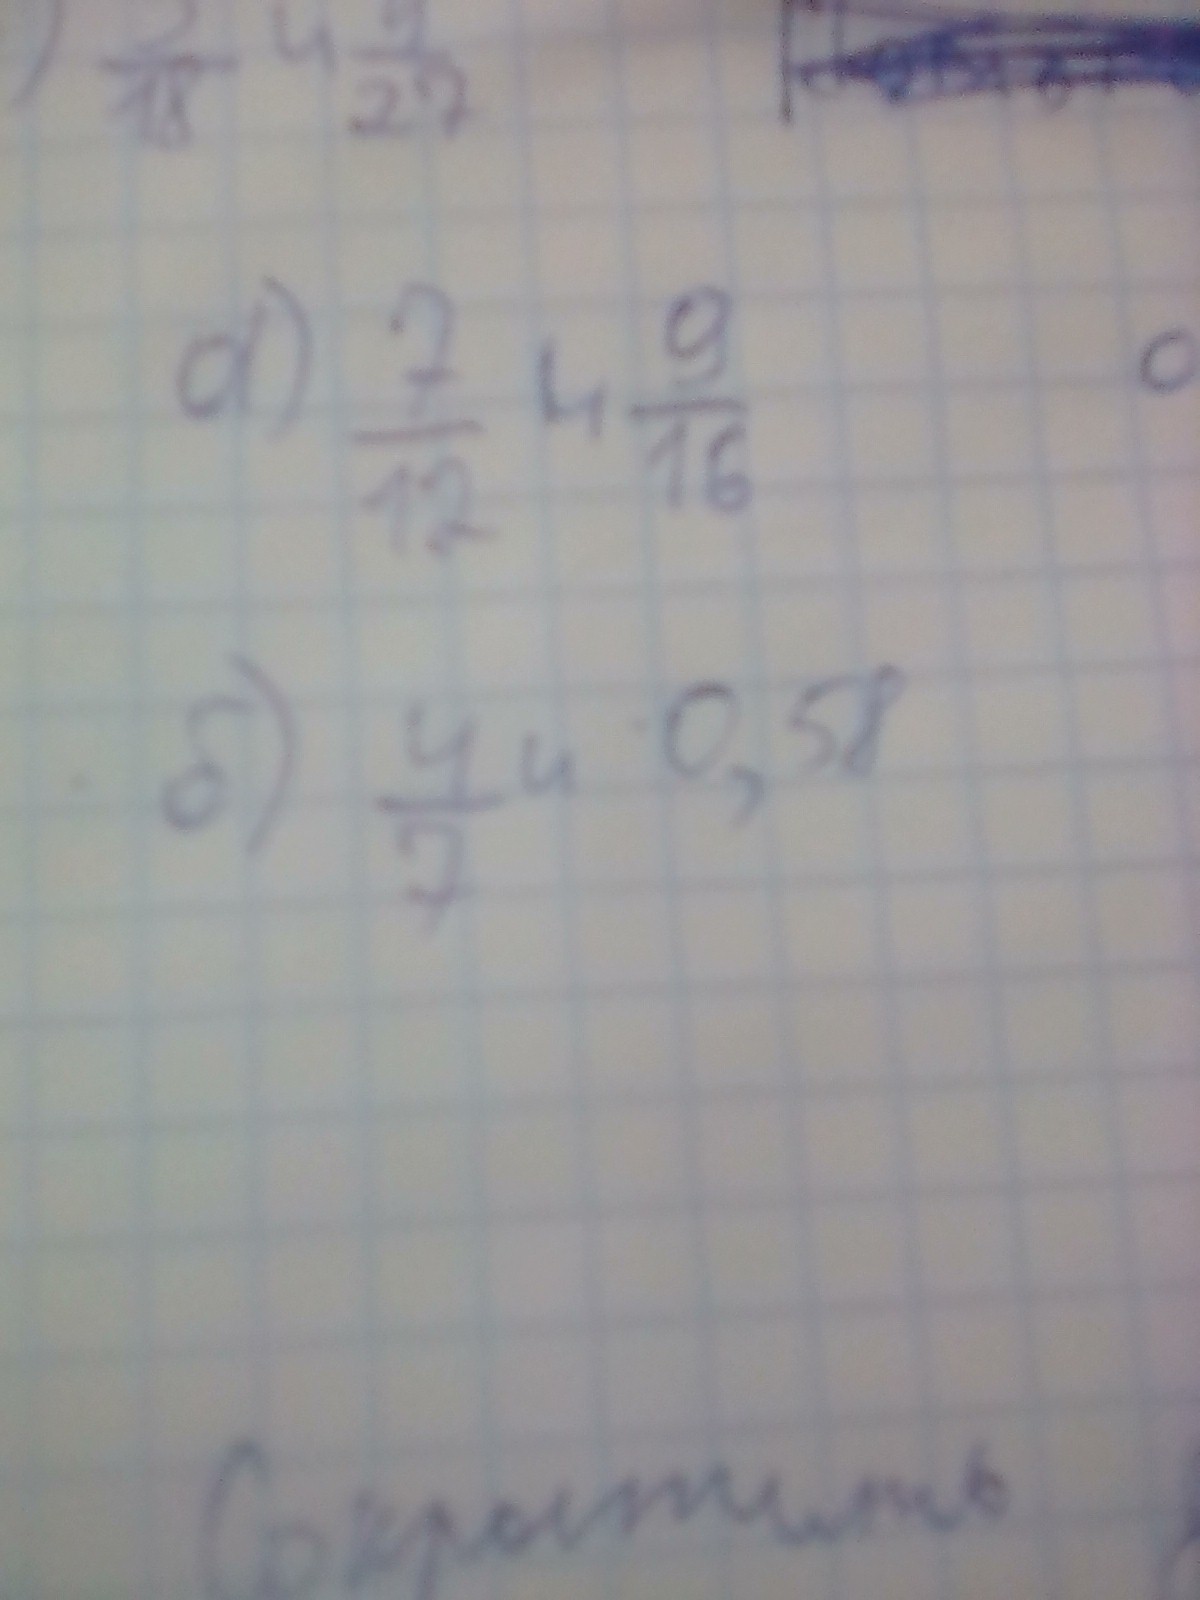 ) /18 и /27
а) 7/12 и 9/16
б) 4/7 и 0,58
Сократить